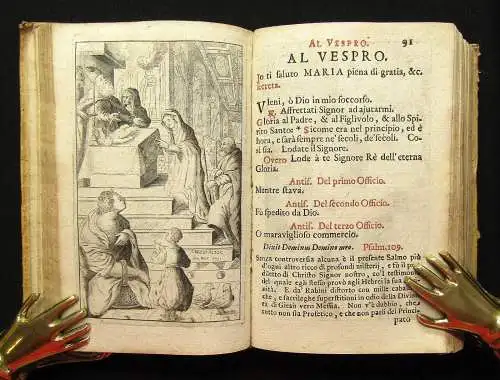 AL VESPRO. 91
AL VESPRO.
Io ti saluto MARIA piena di gratia, &c.
secreta.
Vieni, ò Dio in mio soccorso.
R. Affrettati Signor ad ajutarmi.
Gloria al Padre, & al Figlivolo, & allo Spi-
rito Santo: * Sicome era nel principio, ed è
hora, e sarà sempre ne' secoli, de'secoli. Co-
sì sia. Lodate il Signore.
Overo Lode à te Signore Rè dell'eterna
Gloria.
Antif. Del primo Officio.
Mentre stava.
Antif. Del secondo Officio.
Fù spedito da Dio.
Antif. Del terzo Officio.
O maraviglioso commercio.
Dixit Dominus Domino meo. Psalm.109.
Senza controversia alcuna è il presente Salmo più
d'ogni altro ricco di profondi misterij, e frà l'altre
detto di Christo Signor nostro, co'l testimonio
del quale egli stesso provò agli Hebrei la sua
E da' Rabini distorto con mille
e sacrileghe superstitioni in odio della Divini-
di Giesù vero Messia. Non v'è dubbio, che
non sia Profetico, e che non parli del Princi-
pato